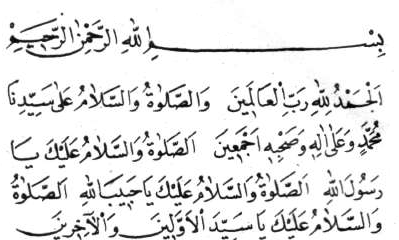 بِسْمِ اللّٰهِ الرَّحْمٰنِ الرَّحِيْمِ
اَلْحَمْدُ لِلّٰهِ رَبِّ الْعَالَمِينَ وَالصَّلٰوةُ وَالسَّلَامُ عَلٰى سَيِّدِنَا
مُحَمَّدٍ وَعَلٰى اٰلِهِ وَصَحْبِهِ اَجْمَعِينَ اَلصَّلٰوةُ وَالسَّلَامُ عَلَيْكَ يَا
رَسُولَ اللّٰهِ اَلصَّلٰوةُ وَالسَّلَامُ عَلَيْكَ يَا حَبِيبَ اللّٰهِ اَلصَّلٰوةُ
وَالسَّلَامُ عَلَيْكَ يَا سَيِّدَ الْاَوَّلِينَ وَالْاٰخِرِينَ